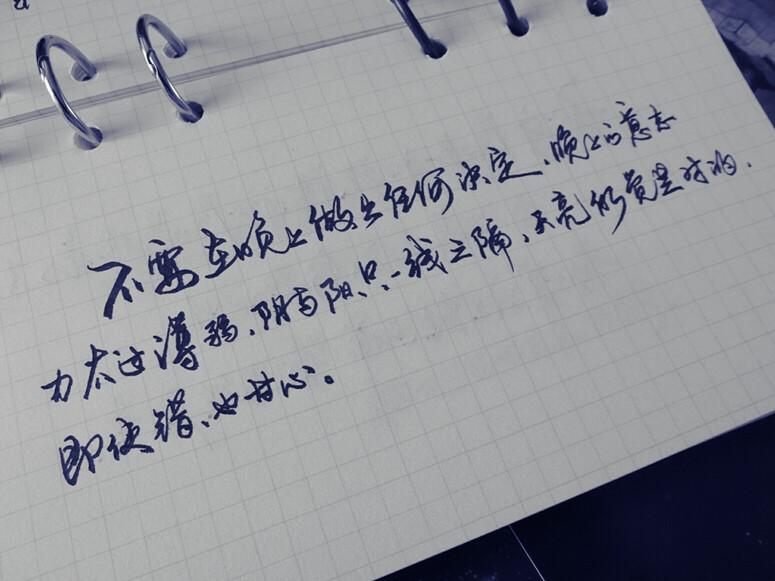 不要在晚上做出任何决定、晚上的意志
力太过薄弱、阴与阳只一线之隔，天亮仍觉是对的.
即使错、也甘心。